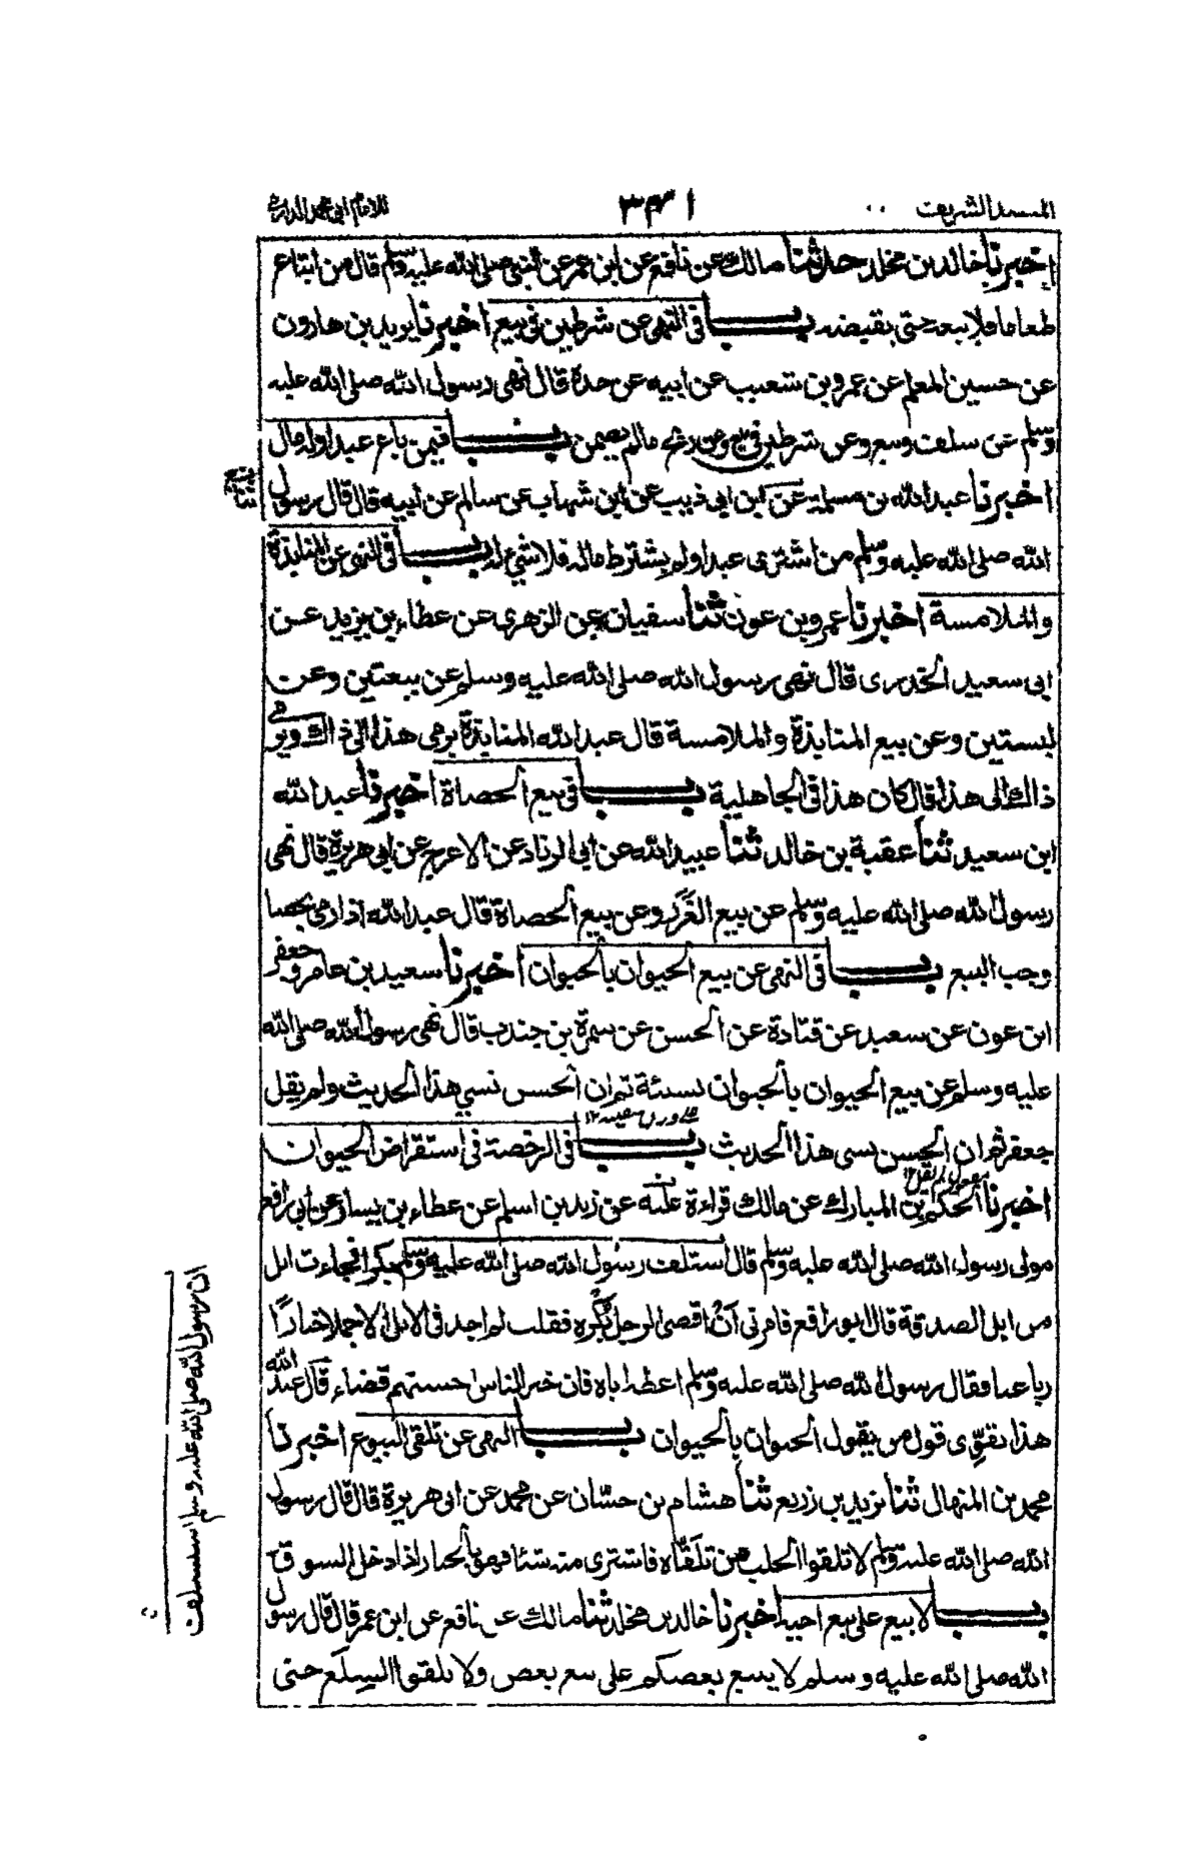 المسند الشريف ٣٤١ للامام ابي محمد الدارمي
اخبرنا خالد بن مخلد حدثنا مالك عن نافع عن ابن عمر عن النبي صلى الله عليه وسلم قال من ابتاع
طعاما فلا يبعه حتى يقبضه باب في النهي عن شرطين في بيع اخبرنا يزيد بن هارون
عن حسين المعلم عن عمرو بن شعيب عن ابيه عن جده قال نهى رسول الله صلى الله عليه
وسلم عن سلف وبيع وعن شرطين في بيع وعن ربح مالم يضمن باب فيمن باع عبدا وله مال
اخبرنا عبد الله بن مسلمة عن ابن ابي ذئب عن ابن شهاب عن سالم عن ابيه قال قال رسول
الله صلى الله عليه وسلم من اشترى عبدا ولم يشترط ماله فلا شيء له باب في النهي عن المنابذة
والملامسة اخبرنا عمرو بن عون ثنا سفيان عن الزهري عن عطاء بن يزيد عن
ابي سعيد الخدري قال نهى رسول الله صلى الله عليه وسلم عن بيعتين وعن
لبستين وعن بيع المنابذة والملامسة قال عبد الله المنابذة يرمي هذا الى ذاك ويرمي
ذاك الى هذا قال كان هذا في الجاهلية باب في بيع الحصاة اخبرنا عبد الله
ابن سعيد ثنا عقبة بن خالد ثنا عبيد الله عن ابي الزناد عن الاعرج عن ابي هريرة قال نهى
رسول الله صلى الله عليه وسلم عن بيع الغَرَر وعن بيع الحصاة قال عبد الله اذا رمى بحصا
وجب البيع باب في النهي عن بيع الحيوان بالحيوان اخبرنا سعيد بن عامر وجعفر
ابن عون عن سعيد عن قتادة عن الحسن عن سمرة بن جندب قال نهى رسول الله صلى الله
عليه وسلم عن بيع الحيوان بالحيوان نسئة ثم ان الحسن نسي هذا الحديث ولم يقل
جعفر ثم ان الحسن نسي هذا الحديث باب في الرخصة في استقراض الحيوان
مفعول لم يقل ١٢
اخبرنا الحكم بن المبارك عن مالك قراءة عليه عن زيد بن اسلم عن عطاء بن يسار عن ابي رافع
مولى رسول الله صلى الله عليه وسلم قال استلف رسول الله صلى الله عليه وسلم بكرا فجاءت ابل
من ابل الصدقة قال ابو رافع فامرني اَنْ اقضي الرجل بكره فقلت لم اجد في الابل الا جملا خيارًا
رباعيا فقال رسول الله صلى الله عليه وسلم اعطه اياه فان خير الناس احسنهم قضاء قال عبد الله
هذا يقوّي قول من يقول الحيوان بالحيوان باب النهي عن تلقي البيوع اخبرنا
محمد بن المنهال ثنا يزيد بن زريع ثنا هشام بن حسّان عن محمد عن ابي هريرة قال قال رسول
الله صلى الله عليه وسلم لا تلقوا الجلب من تلقاه فاشترى منه شئا فهو بالخيار اذا دخل السوق
باب لا يبيع على بيع اخيه اخبرنا خالد بن مخلد ثنا مالك عن نافع عن ابن عمر قال قال رسول
الله صلى الله عليه وسلم لا يبيع بعضكم على بيع بعض ولا تلقوا السلع حتى
ان رسول الله صلى الله عليه وسلم استسلف